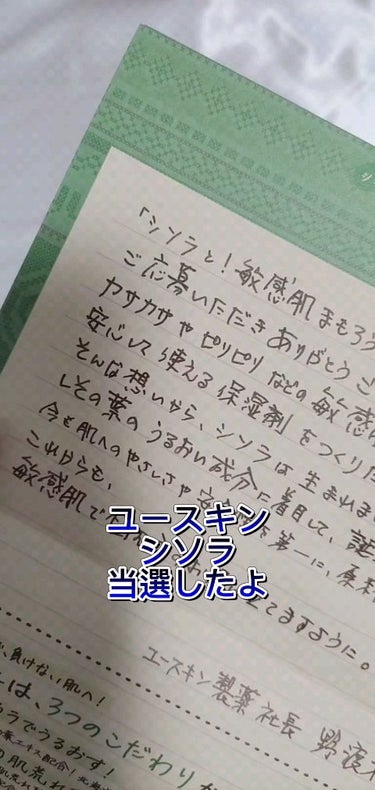 シ
「シソラと!敏感肌まもろう
ご応募いただきありがとうご
カサカサやピリピリなどの敏感
安心して使える保湿剤をつくりた
そんな想いから、シソラは生まれま
しその葉のうるおい成分に着目して、
今も肌へのやさしさや
第一に、原料
これからも、
敏感肌で
てますように。
ユースキン
シソラ
当選したよ
ユースキン製薬社長 野渡
負けない肌へ!
は、3つのこだわり
でうるおす!
エキス配合!
肌荒れ